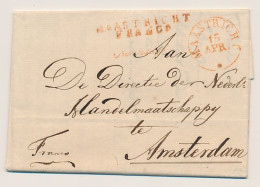 MAASTRICHT
FRANCO
MAASTRICHT
15
APR
Aan
De Directie der Nederl
Handelmaatschappy
te
Amsterdam
Franco